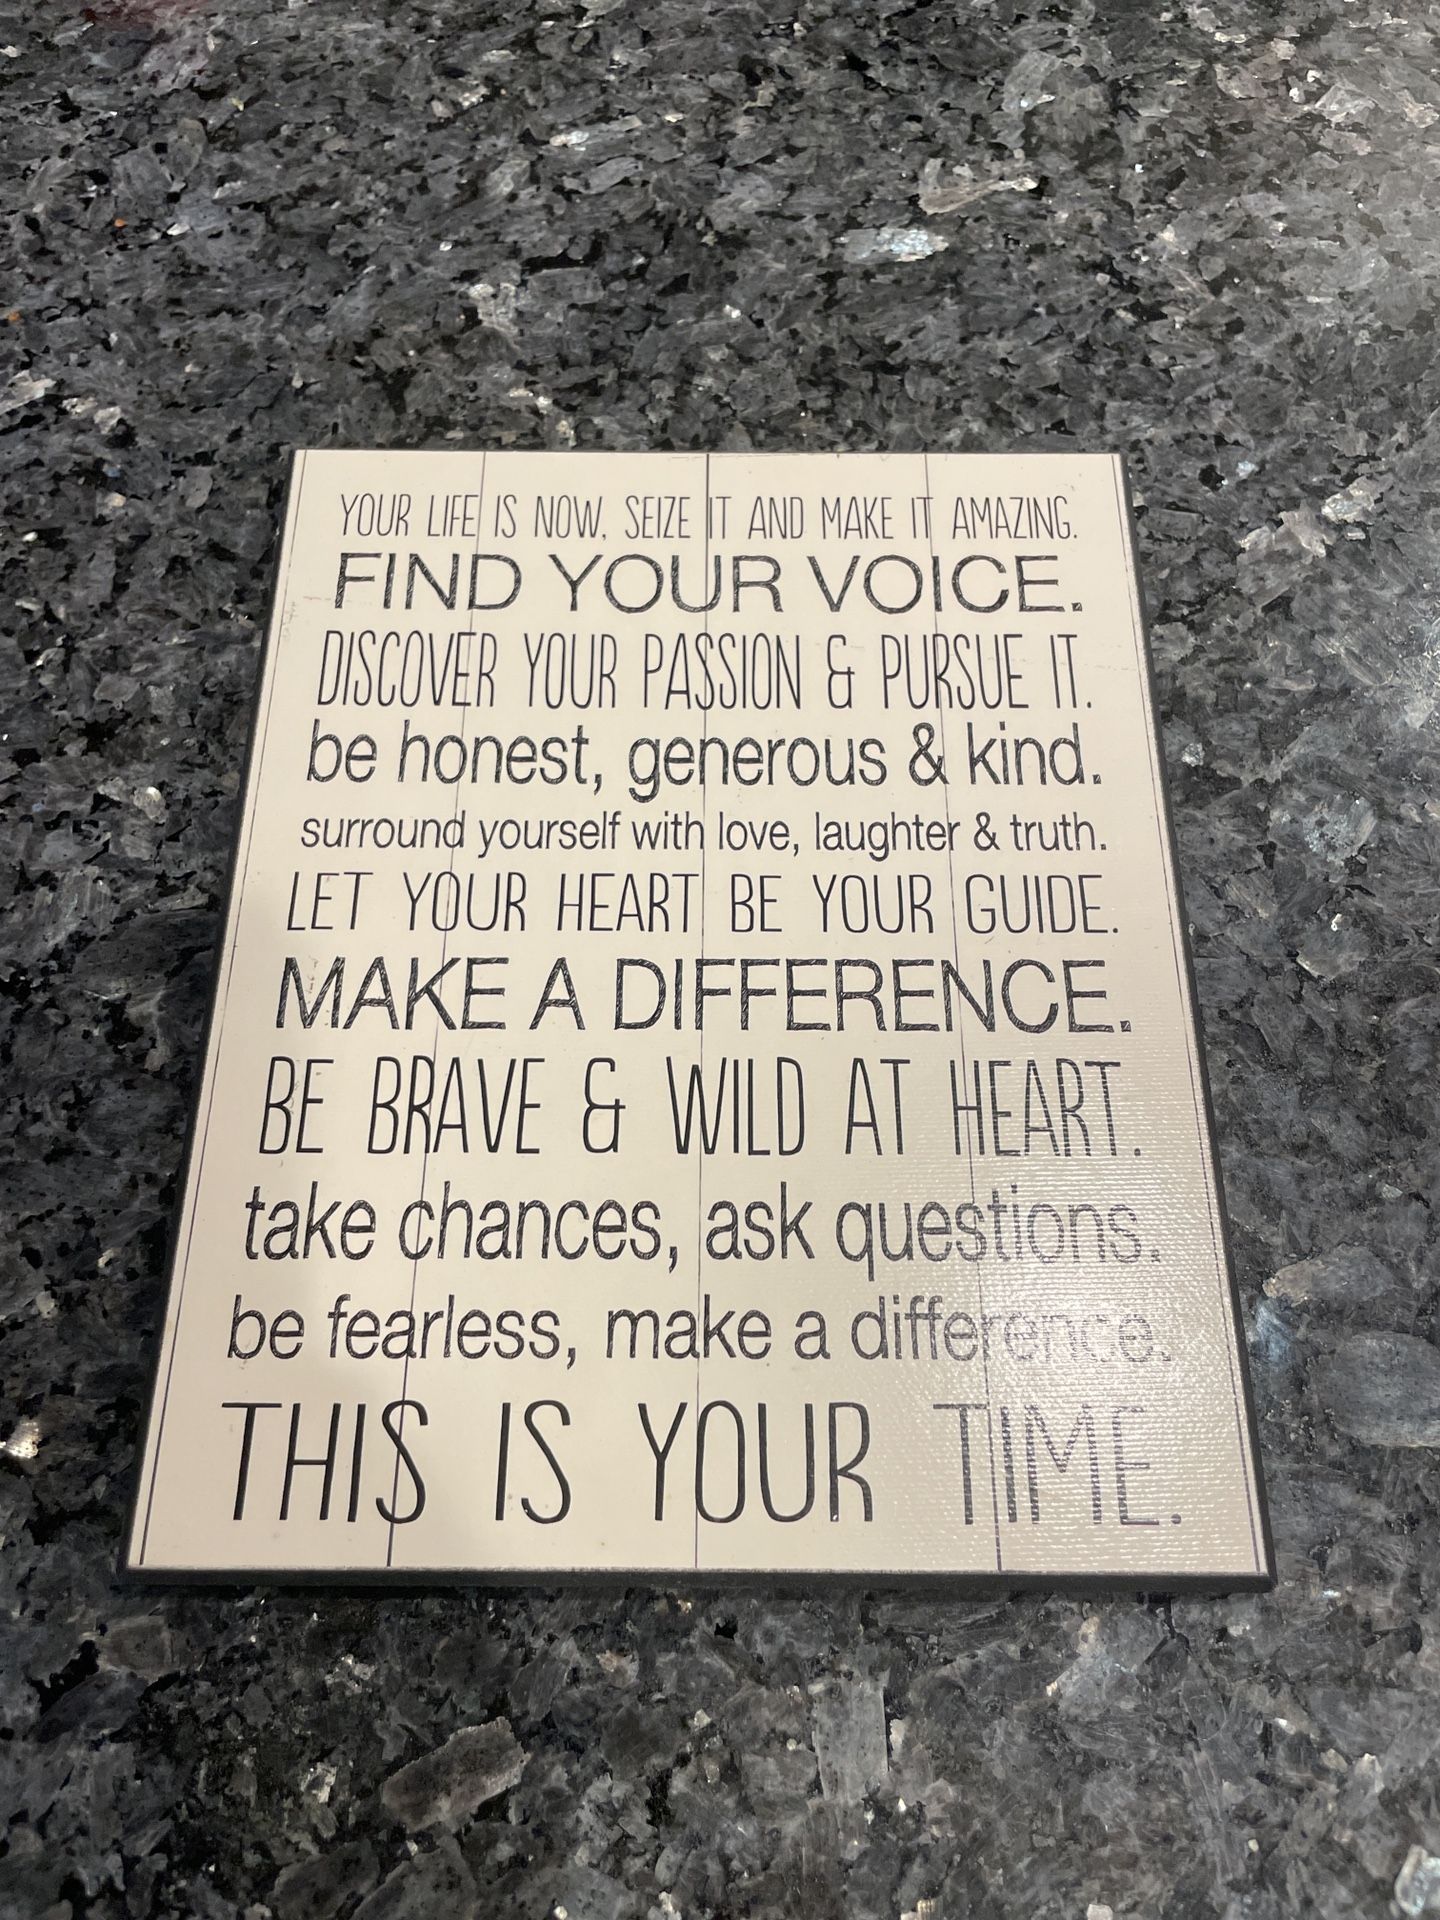 YOUR LIFE IS NOW, SEIZE IT AND MAKE IT AMAZING.
FIND YOUR VOICE.
DISCOVER YOUR PASSION & PURSUE IT.
be honest, generous & kind.
surround yourself with love, laughter & truth.
LET YOUR HEART BE YOUR GUIDE.
MAKE A DIFFERENCE.
BE BRAVE & WILD AT HEART.
take chances, ask questions.
be fearless, make a difference.
THIS IS YOUR TIME.